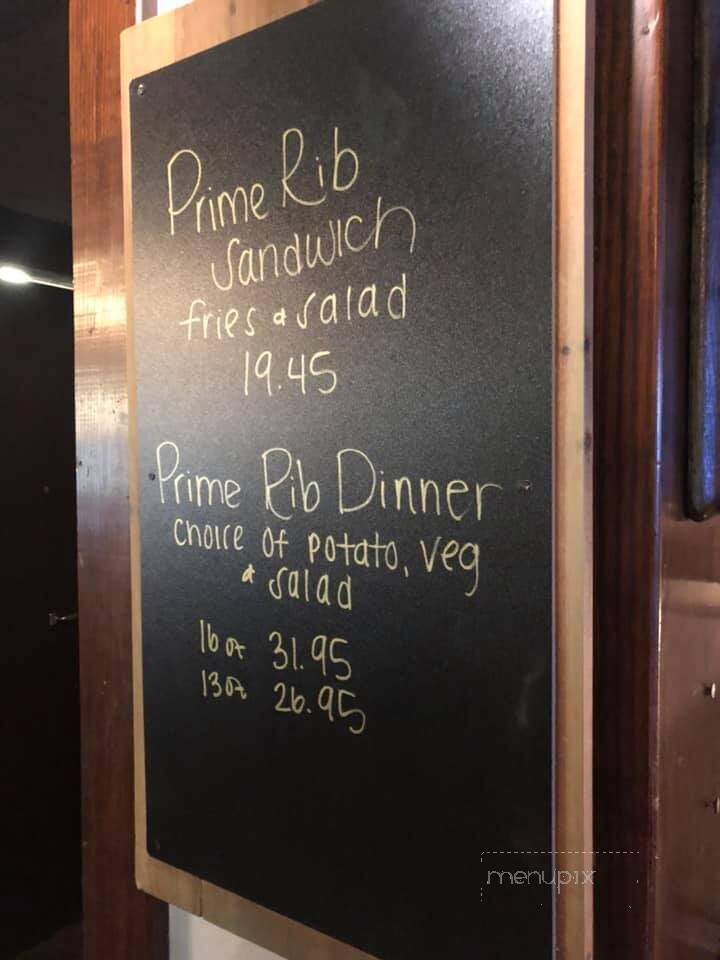 Prime Rib
Sandwich
fries & salad
19.45
Prime Rib Dinner
choice of potato, veg
& salad
16 oz 31.95
13 oz 26.95
menupix